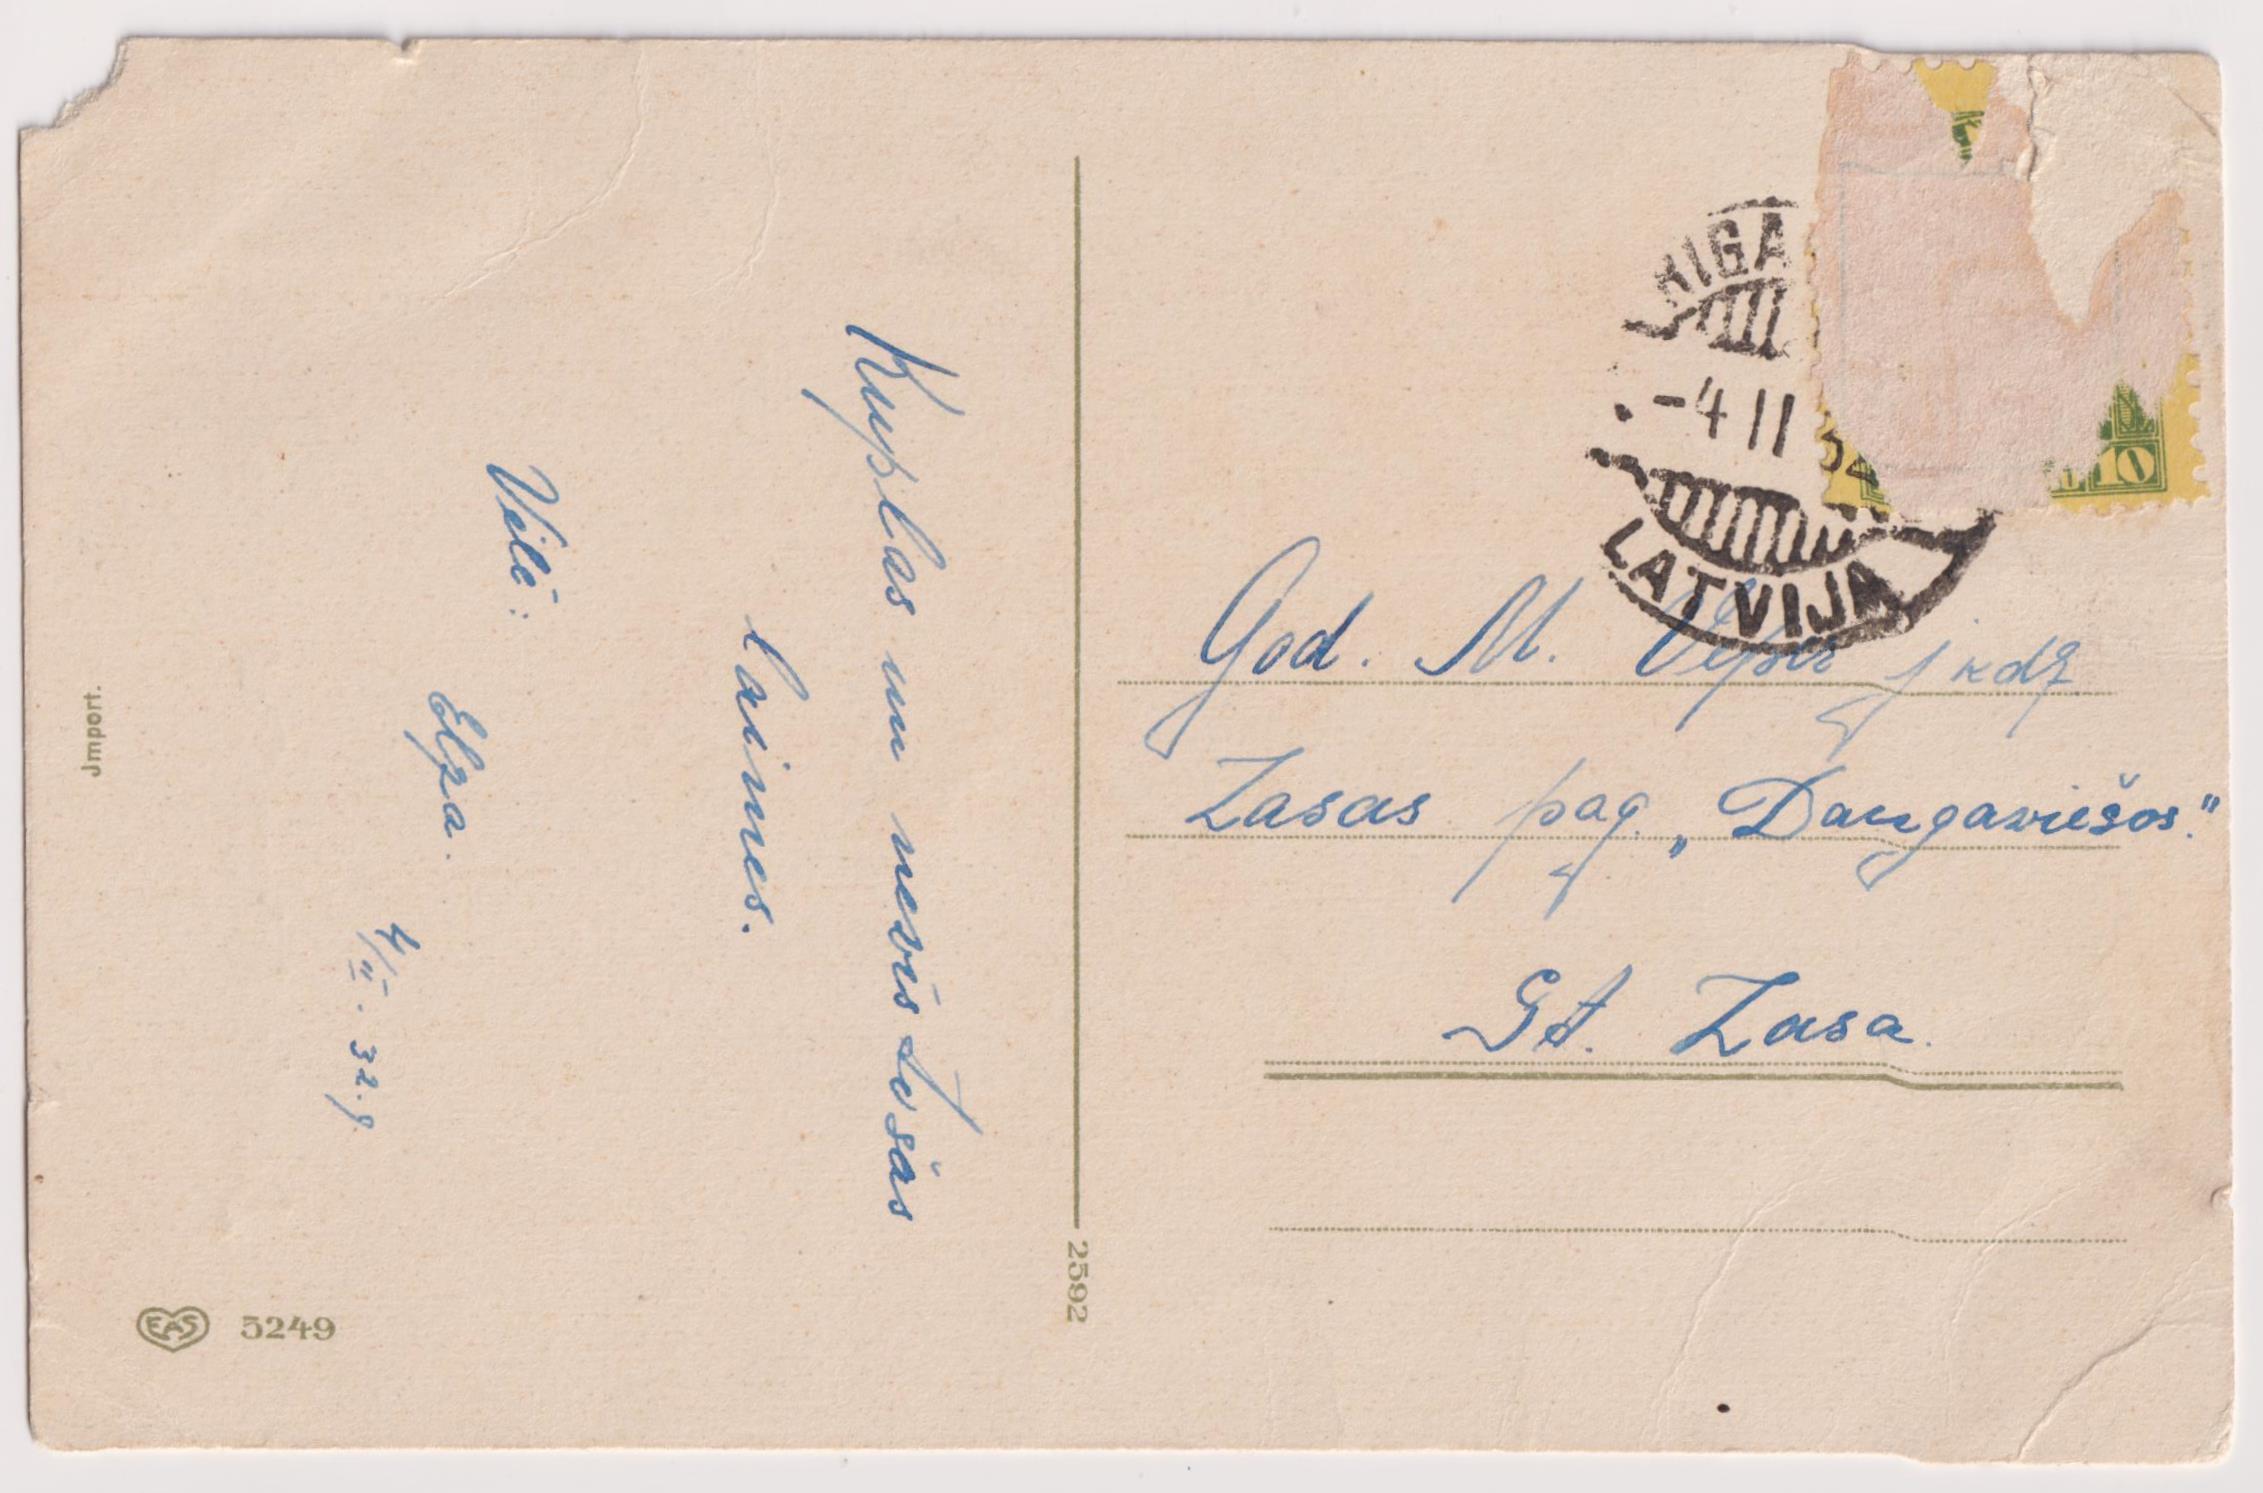 Kuplas un nevīstošas
laimes.
Vēlē:
Elza.
4/II. 32.g
Jmport.
EAS 5249
2592
RIGA
-4 II 32
LATVIJA
10
God. M. jkdz
Zasas pag. „Daugawiešos."
St. Zasa.